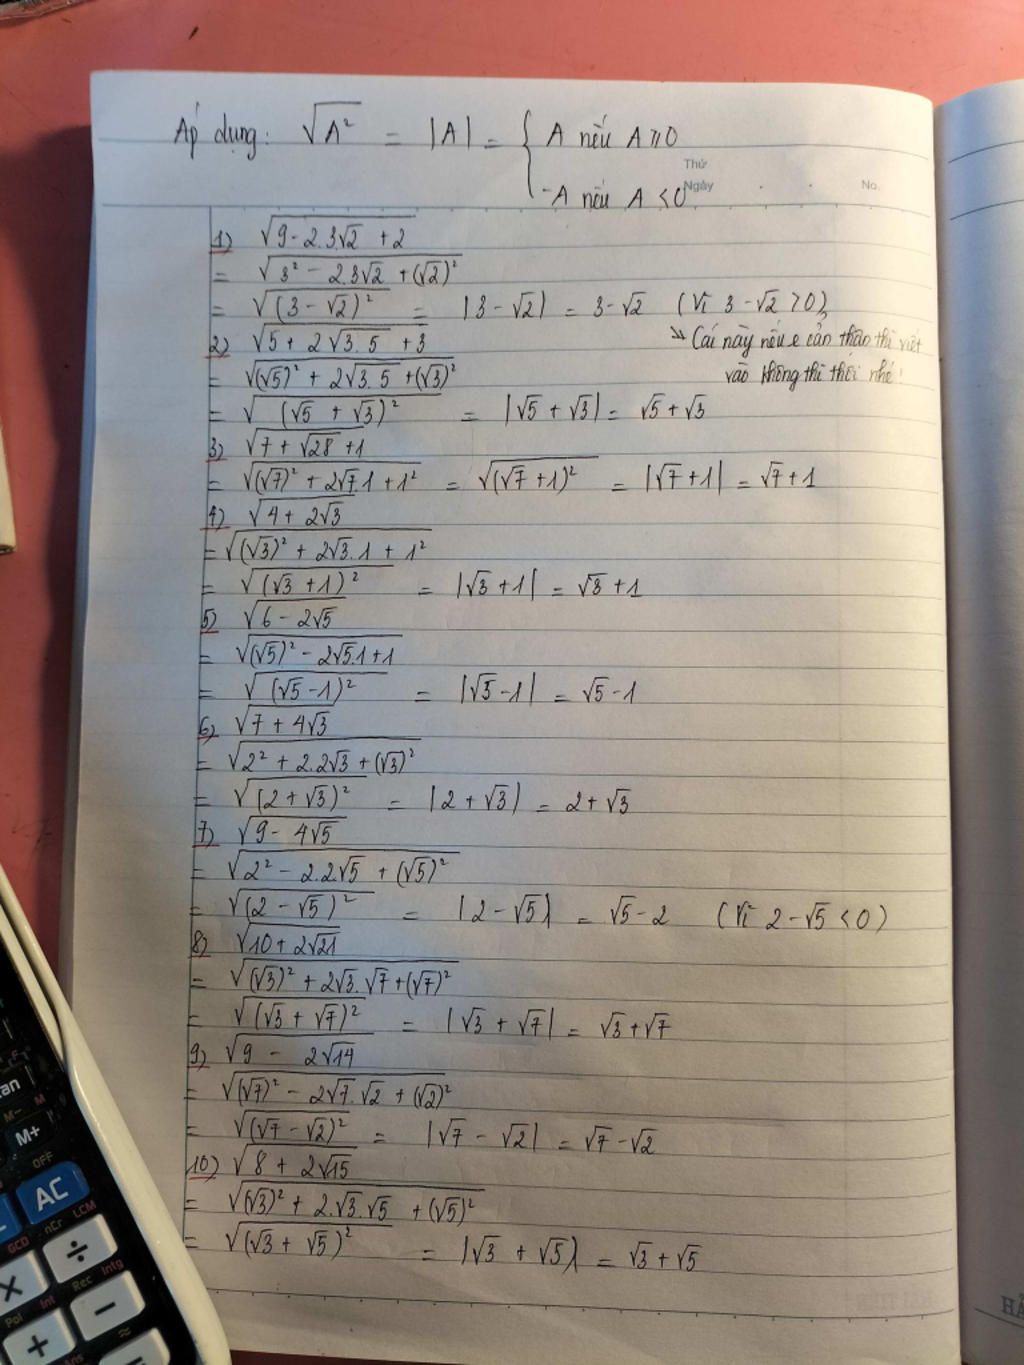 Áp dụng: √A² = |A| = { A nếu A ≥ 0
-A nếu A < 0
Thứ
Ngày
No.
1) √(9 - 2.3√2 + 2)
= √(3² - 2.3√2 + (√2)²)
= √((3 - √2)²) = |3 - √2| = 3 - √2 (Vì 3 - √2 > 0)
2) √(5 + 2√3.5 + 3)
→ Cái này nếu e cẩn thận thì viết
vào không thì thôi nhé!
= √((√5)² + 2√3.5 + (√3)²)
= √((√5 + √3)²) = |√5 + √3| = √5 + √3
3) √(7 + √28 + 1)
= √((√7)² + 2√7.1 + 1²) = √((√7 + 1)²) = |√7 + 1| = √7 + 1
4) √(4 + 2√3)
= √((√3)² + 2√3.1 + 1²)
= √((√3 + 1)²) = |√3 + 1| = √3 + 1
5) √(6 - 2√5)
= √((√5)² - 2√5.1 + 1)
= √((√5 - 1)²) = |√5 - 1| = √5 - 1
6) √(7 + 4√3)
= √(2² + 2.2√3 + (√3)²)
= √((2 + √3)²) = |2 + √3| = 2 + √3
7) √(9 - 4√5)
= √(2² - 2.2√5 + (√5)²)
= √((2 - √5)²) = |2 - √5| = √5 - 2 (Vì 2 - √5 < 0)
8) √(10 + 2√21)
= √((√3)² + 2√3.√7 + (√7)²)
= √((√3 + √7)²) = |√3 + √7| = √3 + √7
9) √(9 - 2√14)
= √((√7)² - 2√7.√2 + (√2)²)
= √((√7 - √2)²) = |√7 - √2| = √7 - √2
10) √(8 + 2√15)
= √((√3)² + 2.√3.√5 + (√5)²)
= √((√3 + √5)²) = |√3 + √5| = √3 + √5
M+
OFF
AC
nCr
LCM
GCD
÷
×
Pol
Int
Rec
Intg
-
+